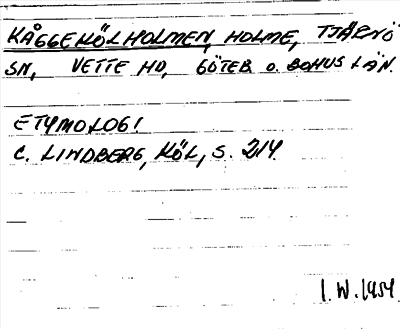 KÅGGEKÖLHOLMEN, HOLME, TJÄRNÖ
SN, VETTE HD, GÖTEB. O. BOHUS LÄN.
ETYMOLOGI
C. LINDBERG, KÖL, S. 214.
I.W. 1954